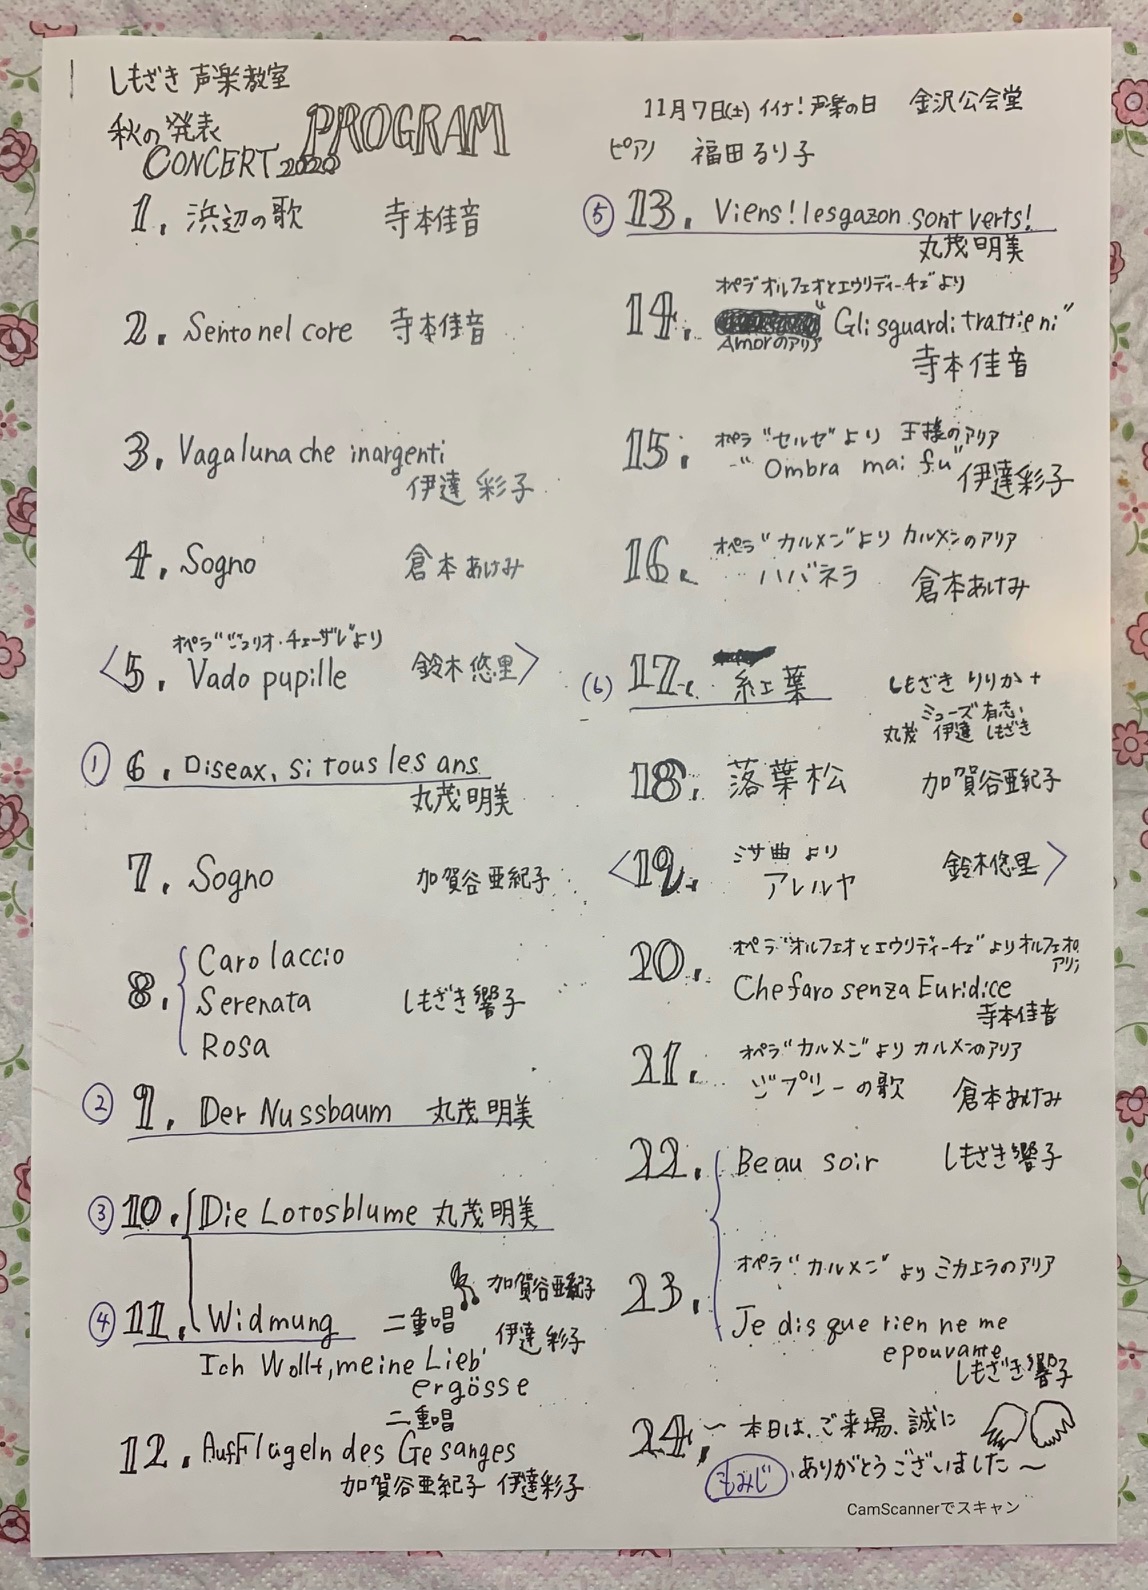 しもざき 声楽教室
秋の発表 PROGRAM
CONCERT 2020
11月7日(土) イイナ!声楽の日 金沢公会堂
ピアノ 福田るり子
1. 浜辺の歌 寺本佳音
2. Sento nel core 寺本佳音
3. Vaga luna che inargenti
伊達 彩子
4. Sogno 倉本あけみ
オペラ"ジュリオ・チェーザレ"より
〈5. Vado pupille 鈴木悠里〉
① 6. Oiseax, si tous les ans
丸茂明美
7. Sogno 加賀谷亜紀子
8. Caro laccio
Serenata しもざき響子
Rosa
② 9. Der Nussbaum 丸茂明美
③ 10. Die Lotosblume 丸茂明美
④ 11. Widmung 二重唱 加賀谷亜紀子
伊達彩子
Ich Wollt, meine Lieb'
ergösse
二重唱
12. Auf Flügeln des Gesanges
加賀谷亜紀子 伊達彩子
⑤ 13. Viens! les gazon sont verts!
丸茂明美
オペラ"オルフェオとエウリディーチェ"より
14. "Gli sguardi trattieni"
Amorのアリア
寺本佳音
15. オペラ"セルセ"より 王様のアリア
"Ombra mai fu" 伊達彩子
16. オペラ"カルメン"より カルメンのアリア
ハバネラ 倉本あけみ
(6) 17. 紅葉 しもざき りりか+
ミューズ有志
丸茂 伊達 しもざき
18. 落葉松 加賀谷亜紀子
〈19. ミサ曲 より 鈴木悠里〉
アレルヤ
20. オペラ"オルフェオとエウリディーチェ"よりオルフェオの
アリア
Che faro senza Euridice
寺本佳音
21. オペラ"カルメン"より カルメンのアリア
ジプシーの歌 倉本あけみ
22. Beau soir しもざき響子
オペラ"カルメン"より ミカエラのアリア
23. Je dis que rien ne me
epouvante
しもざき響子
24. 〜本日は、ご来場、誠に
もみじ ありがとうございました〜
CamScannerでスキャン